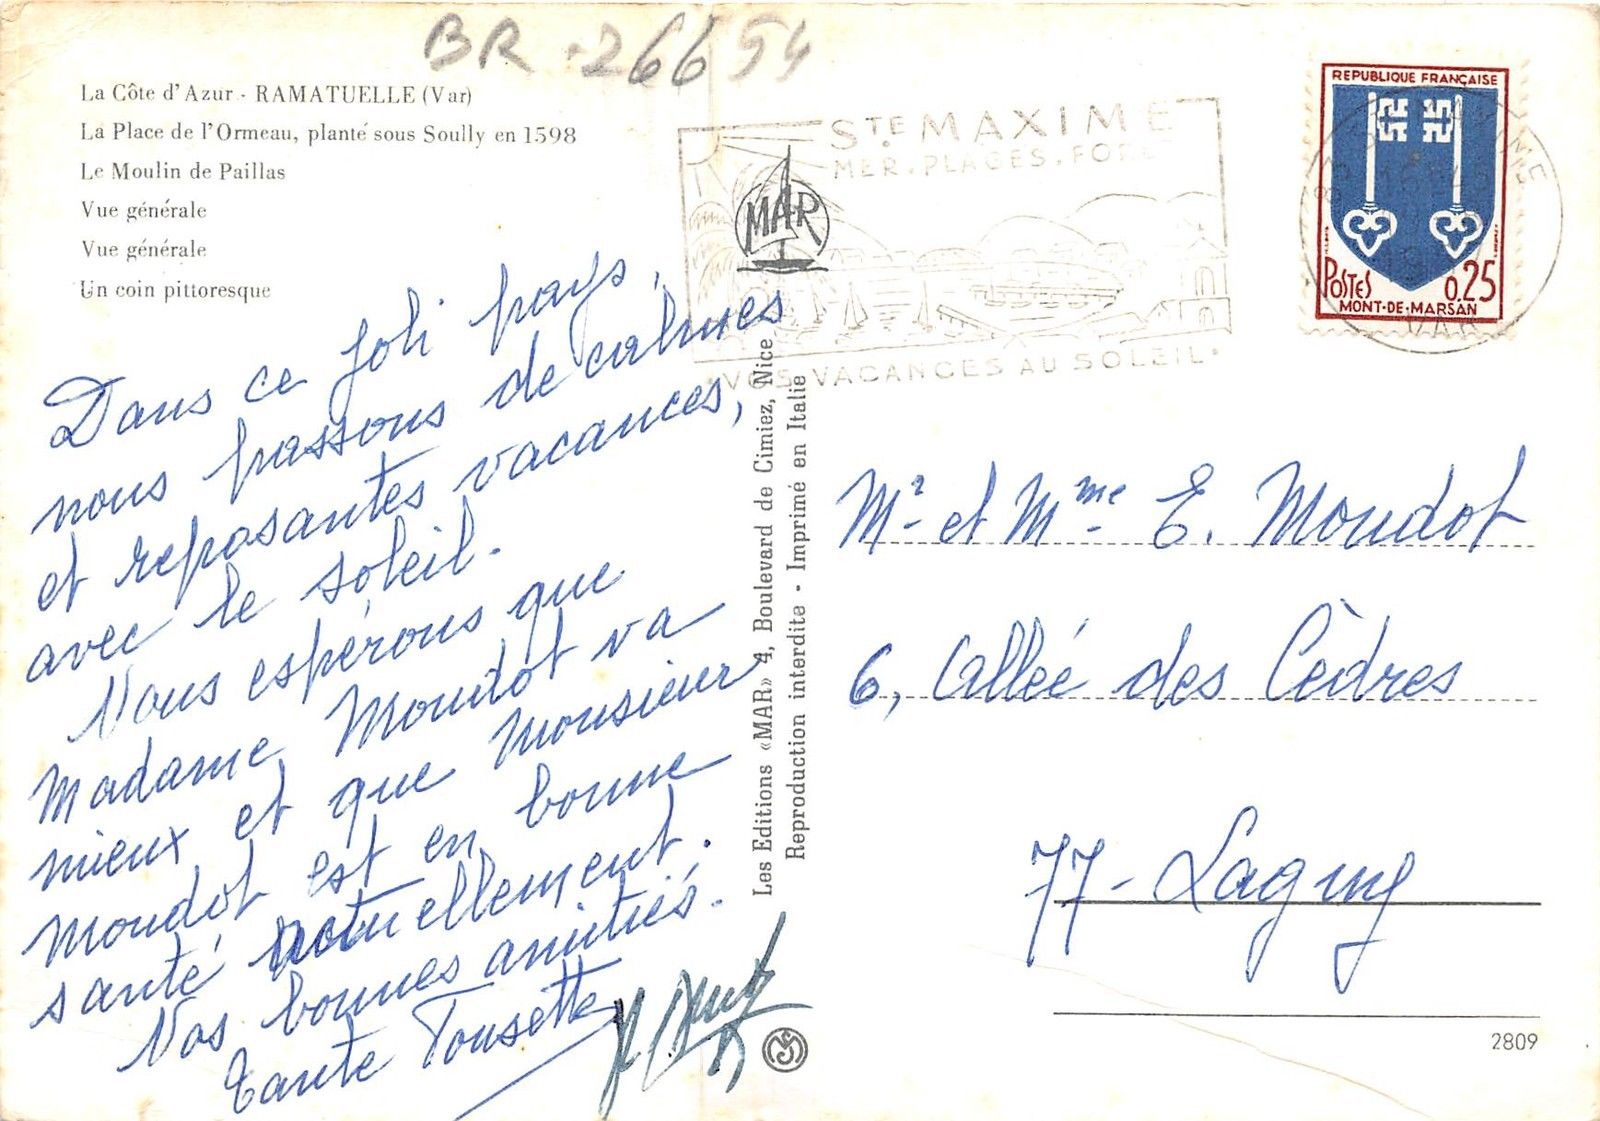 BR.26654
La Côte d'Azur - RAMATUELLE (Var)
La Place de l'Ormeau, planté sous Soully en 1598
Le Moulin de Paillas
Vue générale
Vue générale
Un coin pittoresque
STE MAXIME
MER.PLAGES.
VOS VACANCES AU SOLEIL
MAR
REPUBLIQUE FRANÇAISE
POSTES
0,25
MONT-DE-MARSAN
VAR
Dans ce joli pays,
nous passons de calmes
et reposantes vacances,
avec le soleil.
Nous espérons que
Madame Moudot va
mieux et que Monsieur
Moudot est en bonne
santé actuellement.
Nos bonnes amitiés.
Tante Tousette
Les Editions «MAR» 4, Boulevard de Cimiez, Nice
Reproduction interdite - Imprimé en Italie
Mr et Mme E. Moudot
6, Allée des Cèdres
77 - Lagny
2809